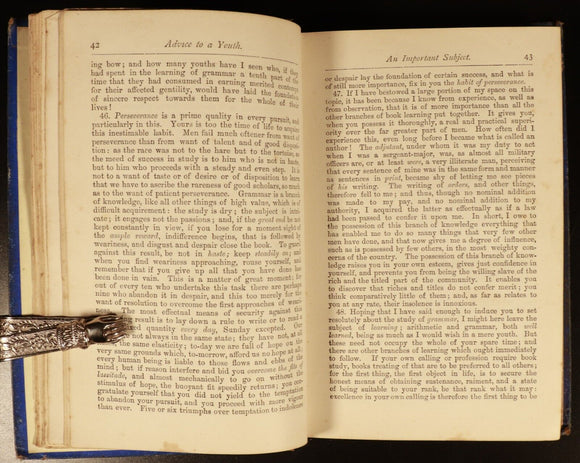 42 Advice to a Youth.
ing how; and how many youths have I seen who, if they
had spent in the learning of grammar a tenth part of the
time that they had consumed in earning merited contempt
for their affected gentility, would have laid the foundation
of sincere respect towards them for the whole of their
lives!
46. Perseverance is a prime quality in every pursuit, and
particularly in this. Yours is too the time of life to acquire
this inestimable habit. Men fail much oftener from want of
perseverance than from want of talent and of good disposi-
tion: as the race was not to the hare but to the tortoise, so
the meed of success in study is to him who is not in haste,
but to him who proceeds with a steady and even step. It is
not to a want of taste or of desire or of disposition to learn
that we have to ascribe the rareness of good scholars, so much
as to the want of patient perseverance. Grammar is a branch
of knowledge, like all other things of high value, which is of
difficult acquirement: the study is dry; the subject is intri-
cate; it engages not the passions; and, if the great end be not
kept constantly in view, if you lose for a moment sight of
the ample reward, indifference begins, that is followed by
weariness, and disgust and despair close the book. To guard
against this result, be not in haste; keep steadily on; and
when you find weariness approaching, rouse yourself, and
remember that if you give up all that you have done has
been done in vain. This is a matter of great moment; for
out of every ten who undertake this task there are perhaps
nine who abandon it in despair, and this too merely for the
want of resolution to overcome the first approaches of weari-
ness. The most effectual means of security against this
result is to lay down a rule to write or to read a
quantity every day, Sunday excepted. Our
are not always in the same state; they have not, at all
same elasticity; to-day we are full of hope on the
very same grounds which, to-morrow, afford us no hope at all;
every human being is liable to those flows and ebbs of the
mind; but if reason interfere and bid you overcome the fits of
lassitude, and almost mechanically to go on without the
stimulus of hope, the buoyant fit speedily returns; you con-
gratulate yourself that you did not yield to the temptation
to abandon your pursuit, and you proceed with more vigour
than ever. Five or six triumphs over temptation to indolence
An Important Subject. 43
or despair lay the foundation of certain success, and what is
of still more importance, fix in you the habit of perseverance.
47. If I have bestowed a large portion of my space on this
topic, it has been because I know from experience, as well as
from observation, that it is of more importance than all the
other branches of book learning put together. It gives you,
when you possess it thoroughly, a real and practical superi-
ority over the far greater part of men. How often did I
experience this, even long before I became what is called an
author! The adjutant, under whom it was my duty to act
when I was a sergeant-major, was, as almost all military
officers are, or at least were, a very illiterate man, perceiving
that every sentence of mine was in the same form and manner
as sentences in print, became shy of letting me see pieces
of his writing. The writing of orders, and other things,
therefore fell to me; and thus, though no nominal addition
was made to my pay, and no nominal addition to my
authority, I acquired the latter as effectually as if a law
had been passed to confer it upon me. In short, I owe to
the possession of this branch of knowledge everything that
has enabled me to do so many things that very few other
men have done, and that now gives me a degree of influence,
such as is possessed by few others, in the most weighty con-
cerns of the country. The possession of this branch of know-
ledge raises you in your own esteem, gives just confidence in
yourself, and prevents you from being the willing slave of the
rich and the titled part of the community. It enables you
to discover that riches and titles do not confer merit; you
think comparatively little of them; and, as far as relates to
you at any rate, their insolence is innoxious.
48. Hoping that I have said enough to induce you to set
resolutely about the study of grammar, I might here leave the
subject of learning; arithmetic and grammar, both well
learned, being as much as I would wish in a mere youth. But
these need not occupy the whole of your spare time; and
there are other branches of learning which ought immediately
to follow. If your own calling or profession require book
study, books treating of that are to be preferred to all others;
for the first thing, the first object in life, is to secure the
honest means of obtaining sustenance, raiment, and a state
of being suitable to your rank, be that rank what it may;
excellence in your own calling is therefore the first thing to be